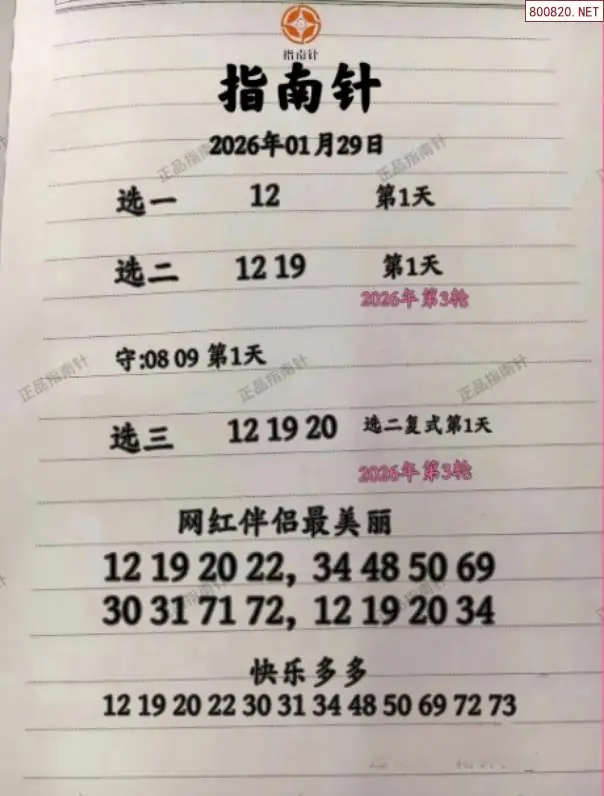 800820.NET
指南针
指南针
2026年01月29日
选一 12 第1天
选二 12 19 第1天
2026年 第3轮
守:08 09 第1天
正品指南针
正品指南针
正品指南针
正品指南针
正品指南针
选三 12 19 20 选二复式第1天
2026年 第3轮
网红伴侣最美丽
12 19 20 22, 34 48 50 69
30 31 71 72, 12 19 20 34
快乐多多
12 19 20 22 30 31 34 48 50 69 72 73